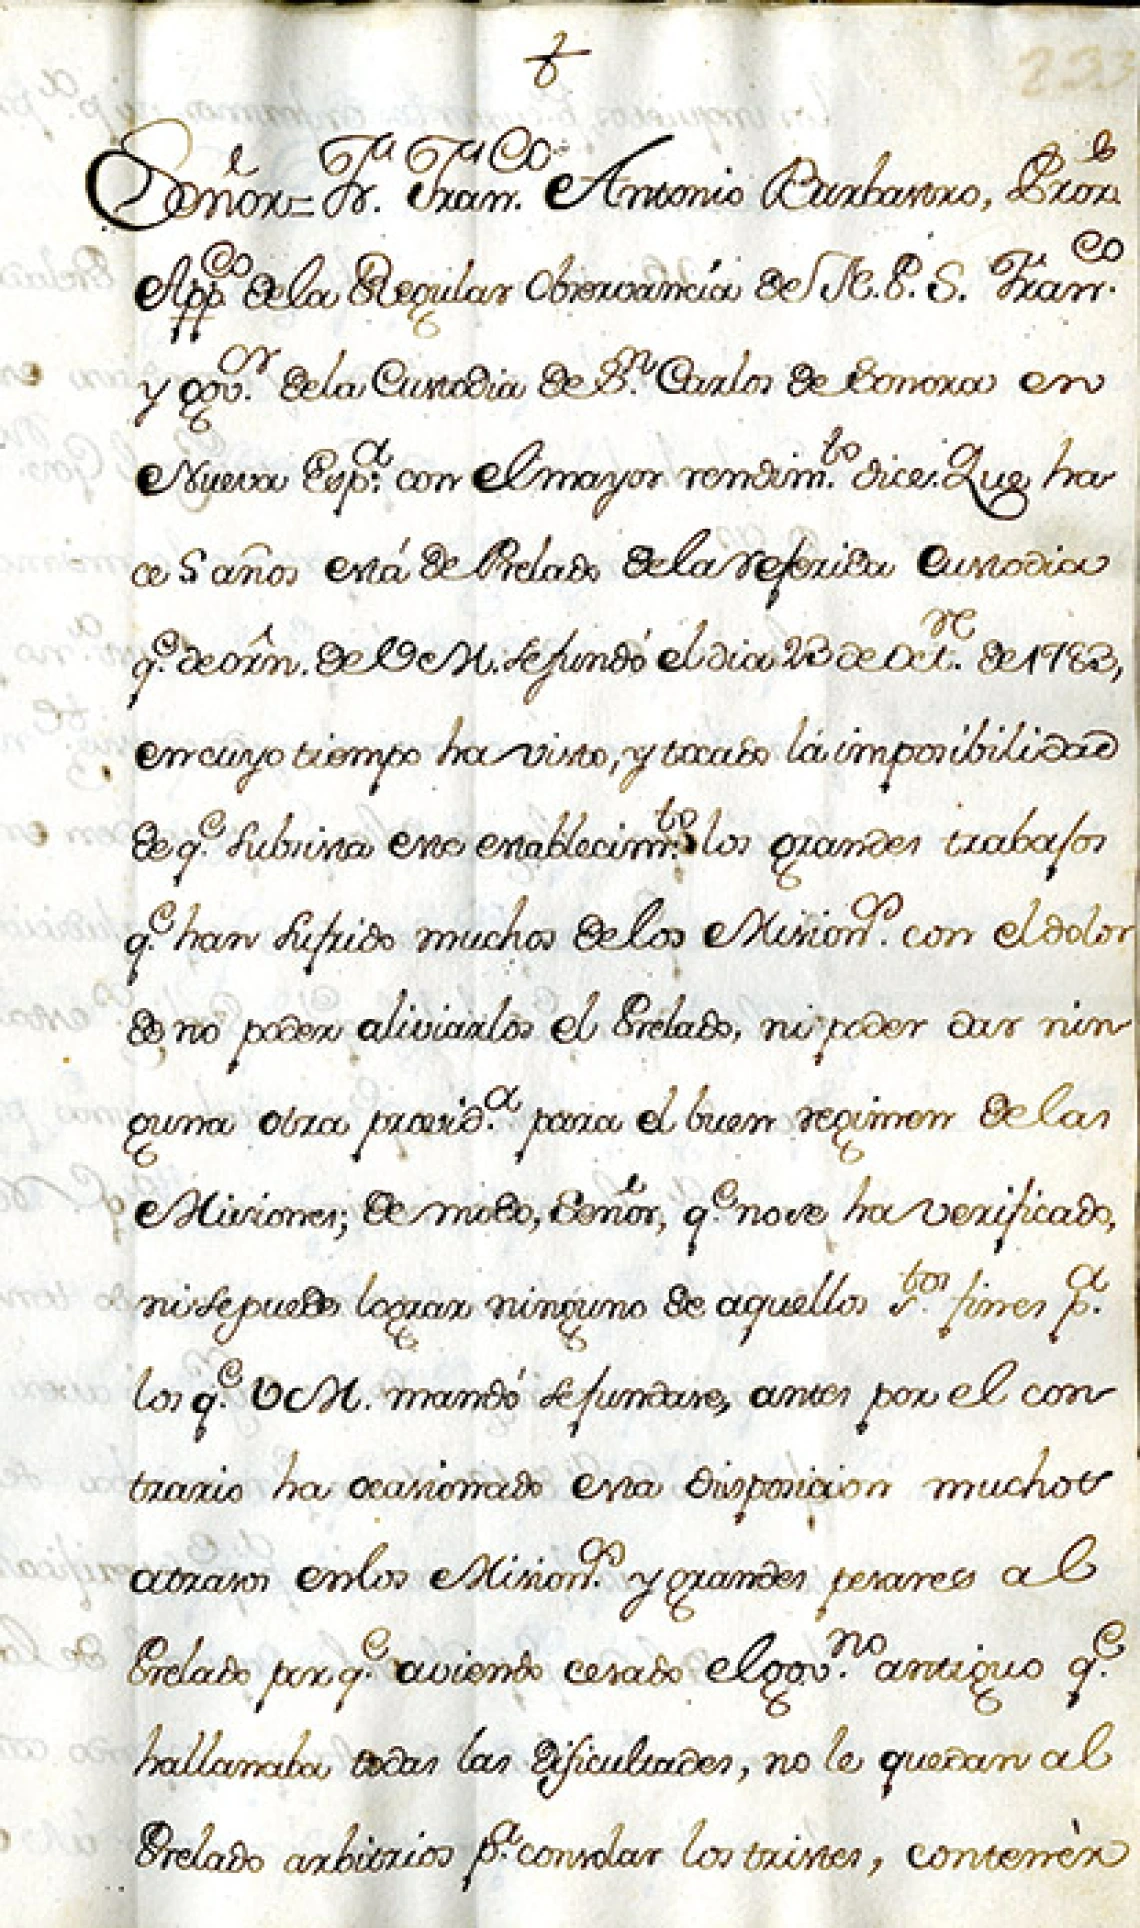 233
Señor = Fr. Fran.co Antonio Barbastro, Pror.
App.co de la Regular Observancia de N. P. S. Fran.co
y gov.or de la Custodia de S.n Carlos de Sonora en
Nueva Esp.a con el mayor rendim.to dice: Que ha
ce 5 años está de Prelado de la referida Custodia
q.e de orñ. de V. M. se fundó el dia 23 de Oct.re de 1783,
en cuyo tiempo ha visto, y tocado la imposibilidad
de q.e subsista este establecim.to los grandes trabajos
q.e han sufrido muchos de los Mision.s con el dolor
de no poder aliviarlos el Prelado, ni poder dar nin
guna otra provid.a para el buen regimen de las
Misiones; de modo, Señor, q.e no se ha verificado,
ni se puede lograr ninguno de aquellos s.tos fines p.a
los q.e V. M. mandó se fundase, antes por el con
trario ha ocasionado esta disposicion muchos
atrasos en los Mision.s y grandes pesares al
Prelado por q.e aviendo cesado el gov.no antiguo q.e
hallanaba todas las dificultades, no le quedan al
Prelado arbitrios p.a consolar los tristes, contener